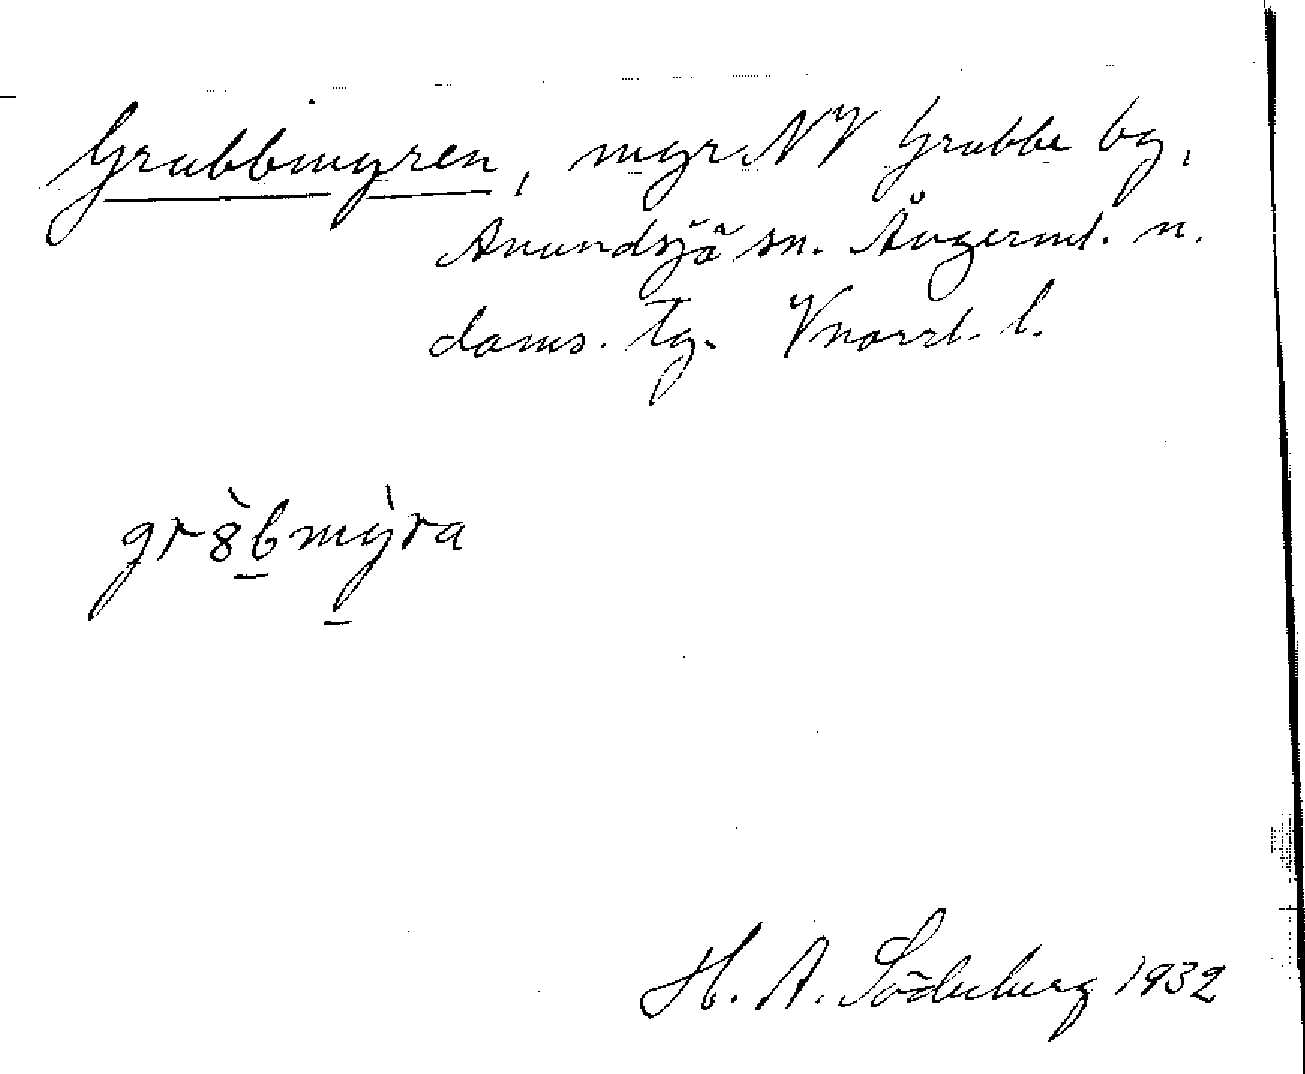 Grubbmyren, myr NV Grubbe by,
Anundsjö sn. Ångerml. n.
doms. tg. Vnorrl. l.
gr8̀b̲mỳ̲ra
H. A. Söderberg 1932